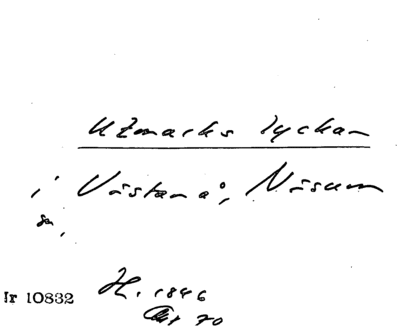 Utmarks lyckan
i Västanå, Näsum
sn,
Ir 10832 H. 1846
Akt 70